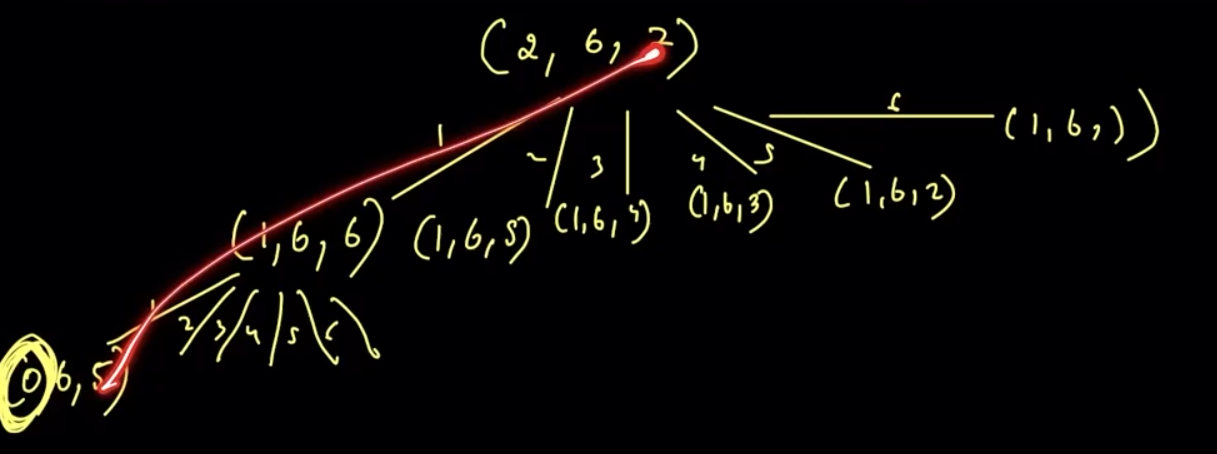 (2, 6, 7)
1 2 3 4 5 6
(1, 6, 6) (1, 6, 5) (1, 6, 4) (1, 6, 3) (1, 6, 2) (1, 6, ))
1 2 3 4 5 6
(0 6, 5)